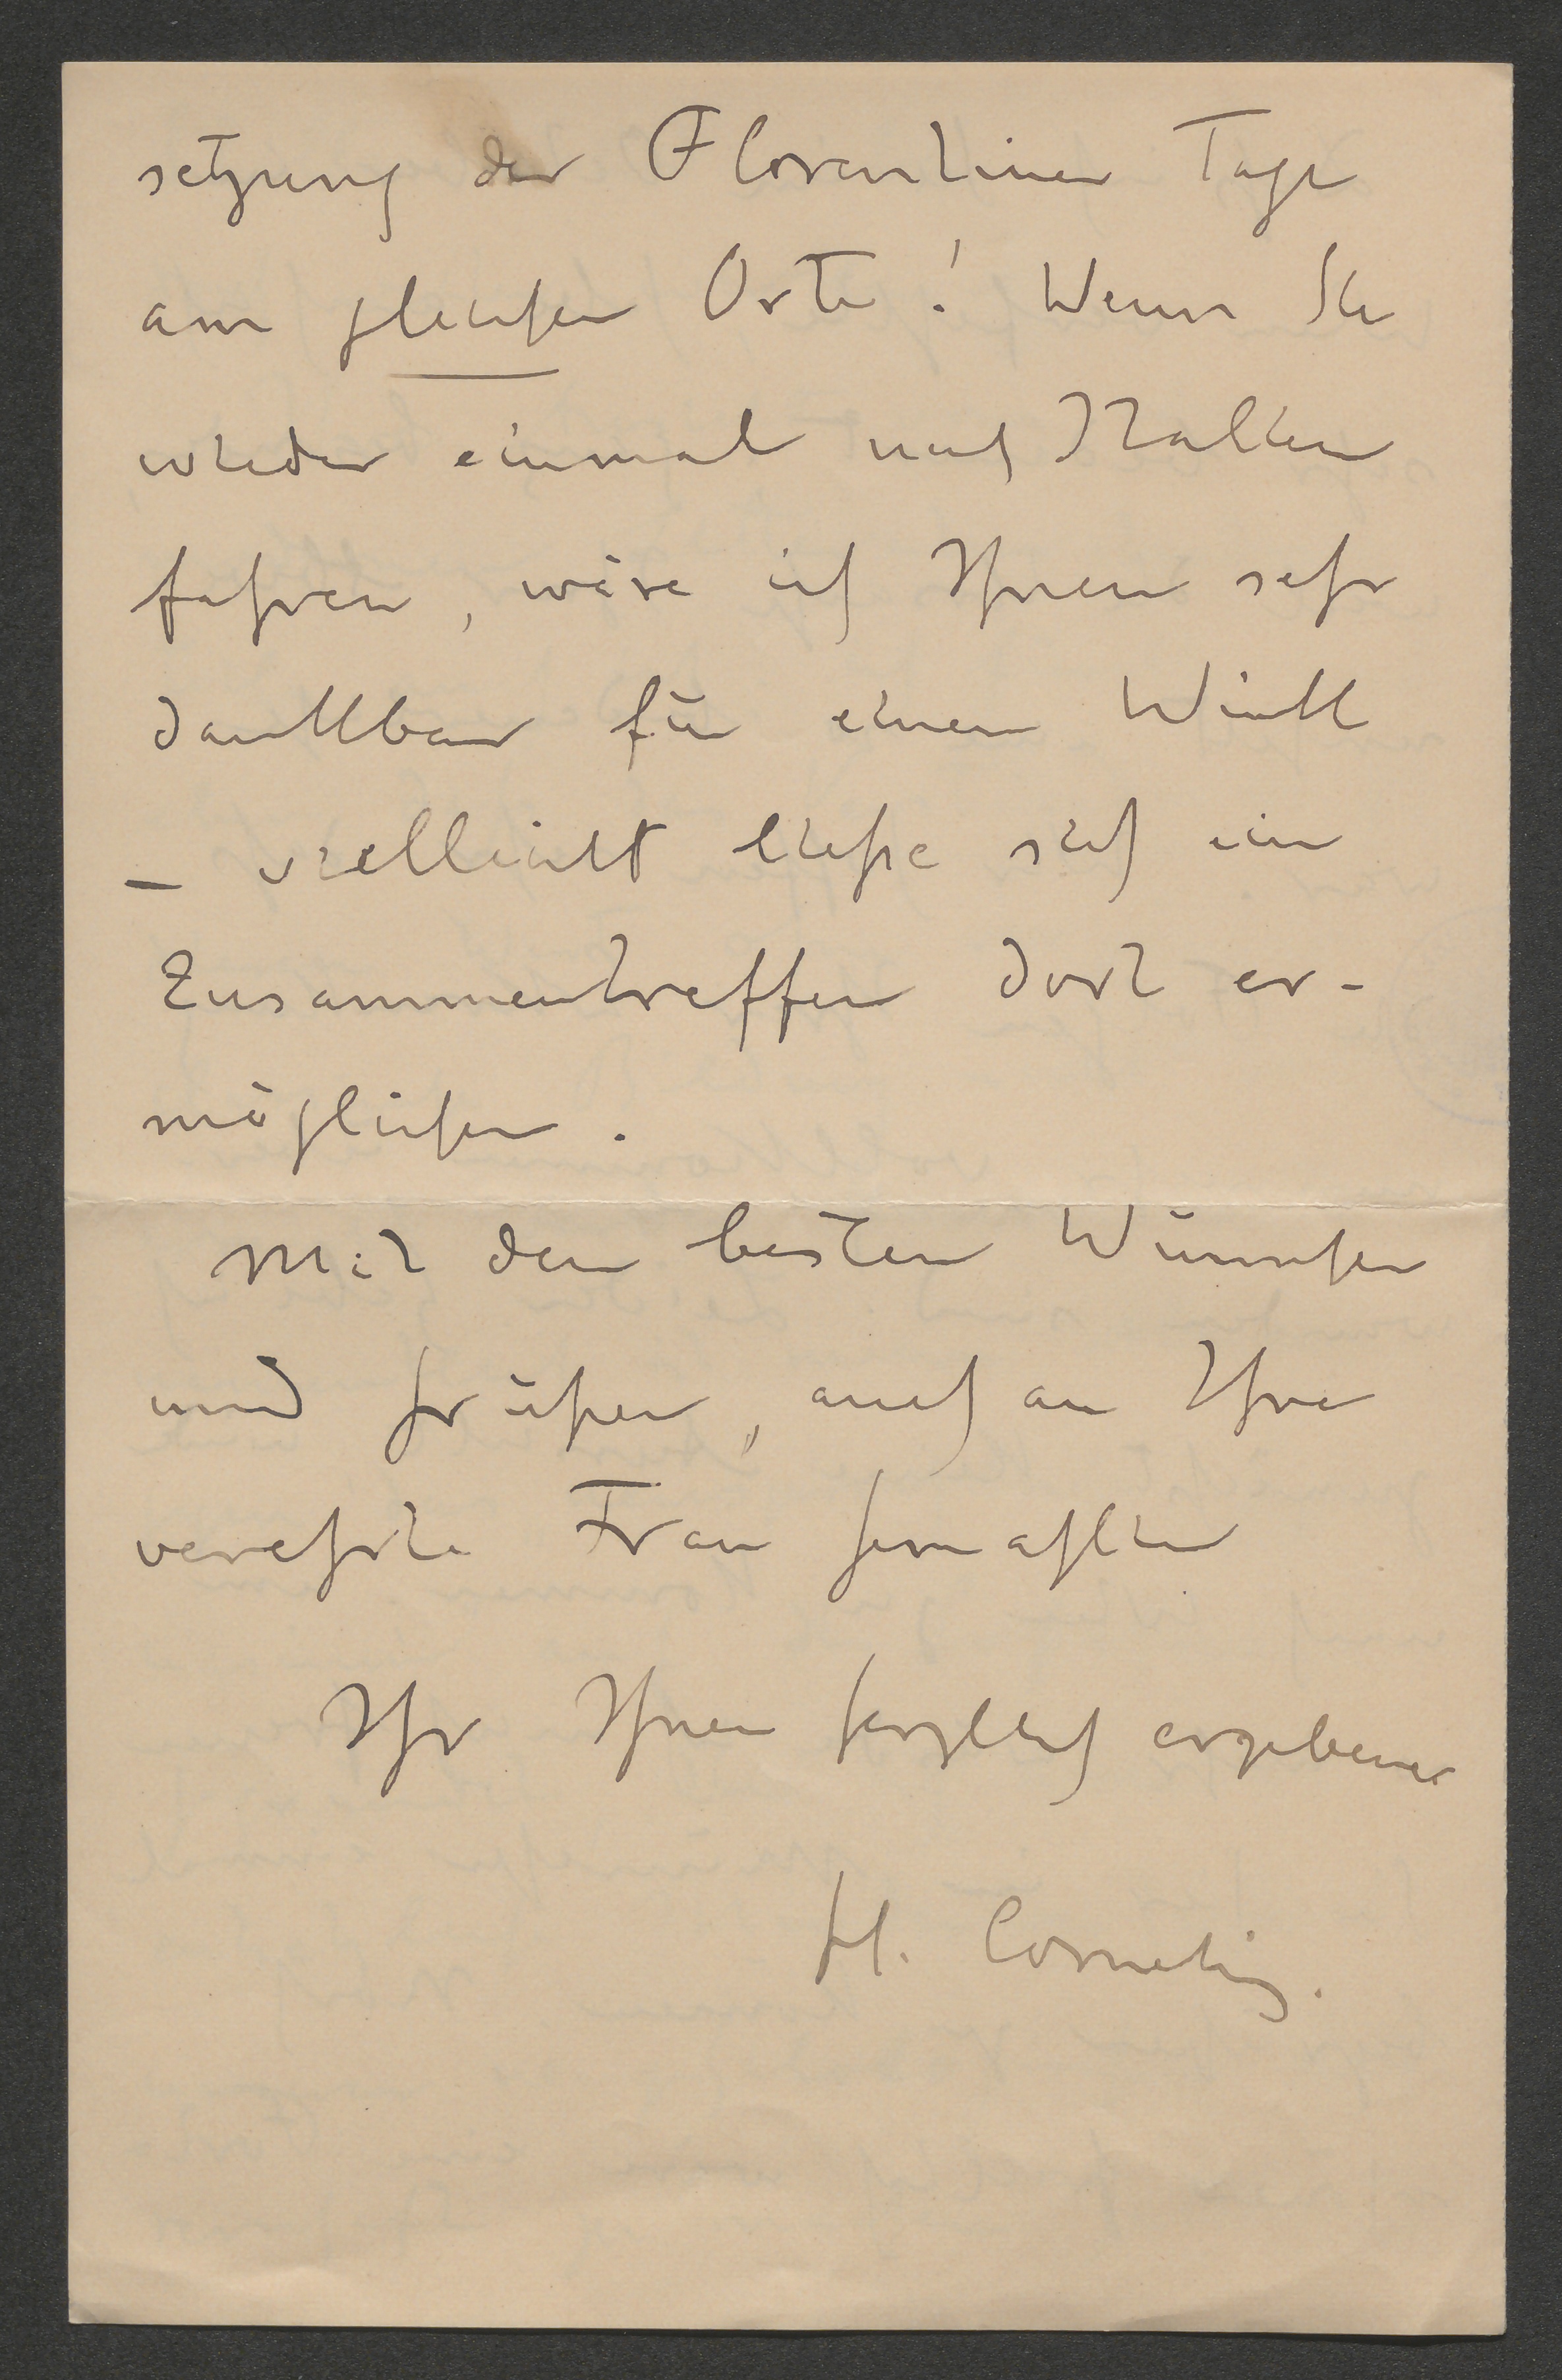 setzung der Florentiner Tage
am gleichen Orte! Wenn Sie
wieder einmal nach Italien
fahren, wäre ich Ihnen sehr
dankbar für einen Wink
– vielleicht ließe sich ein
Zusammentreffen dort er-
möglichen.
Mit den besten Wünschen
und Grüßen, auch an Ihre
verehrte Frau Gemahlin
Ihr Ihnen herzlich ergebener
H. Cornelius.